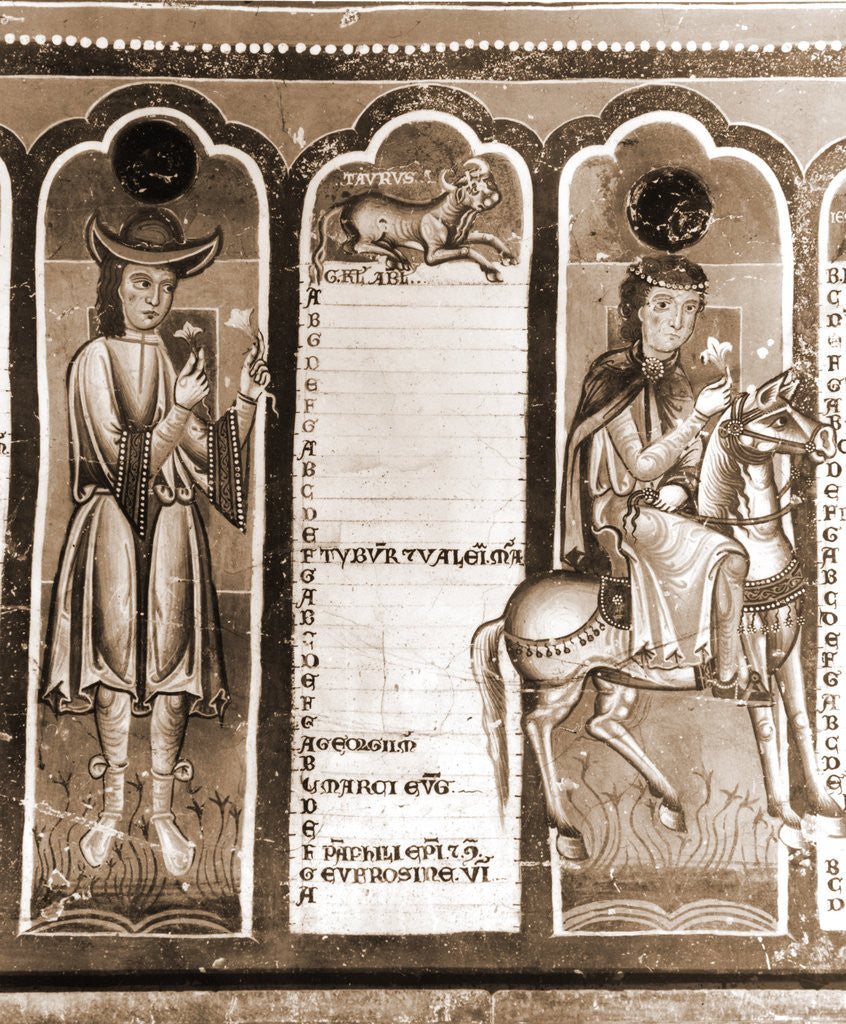 TAVRVS
G. KL̄. APL̄..
A
B
G
D
E
F
G
A
B
C
D
E
F TYBVR̄ ⁊ VALEĪ. M̄A
G
A
B
C
D
E
F
G
A GEORGII M̄
B
C MARCI EVḠ
D
E
F PĀPHILI EPĪ ⁊ 9̄.
G EVFROSINE. VI̅
A
IE
B
C
D
E
F
G
A
B
C
D
E
F
G
A
B
C
D
E
F
G
A
B
C
D
E
B
C
D